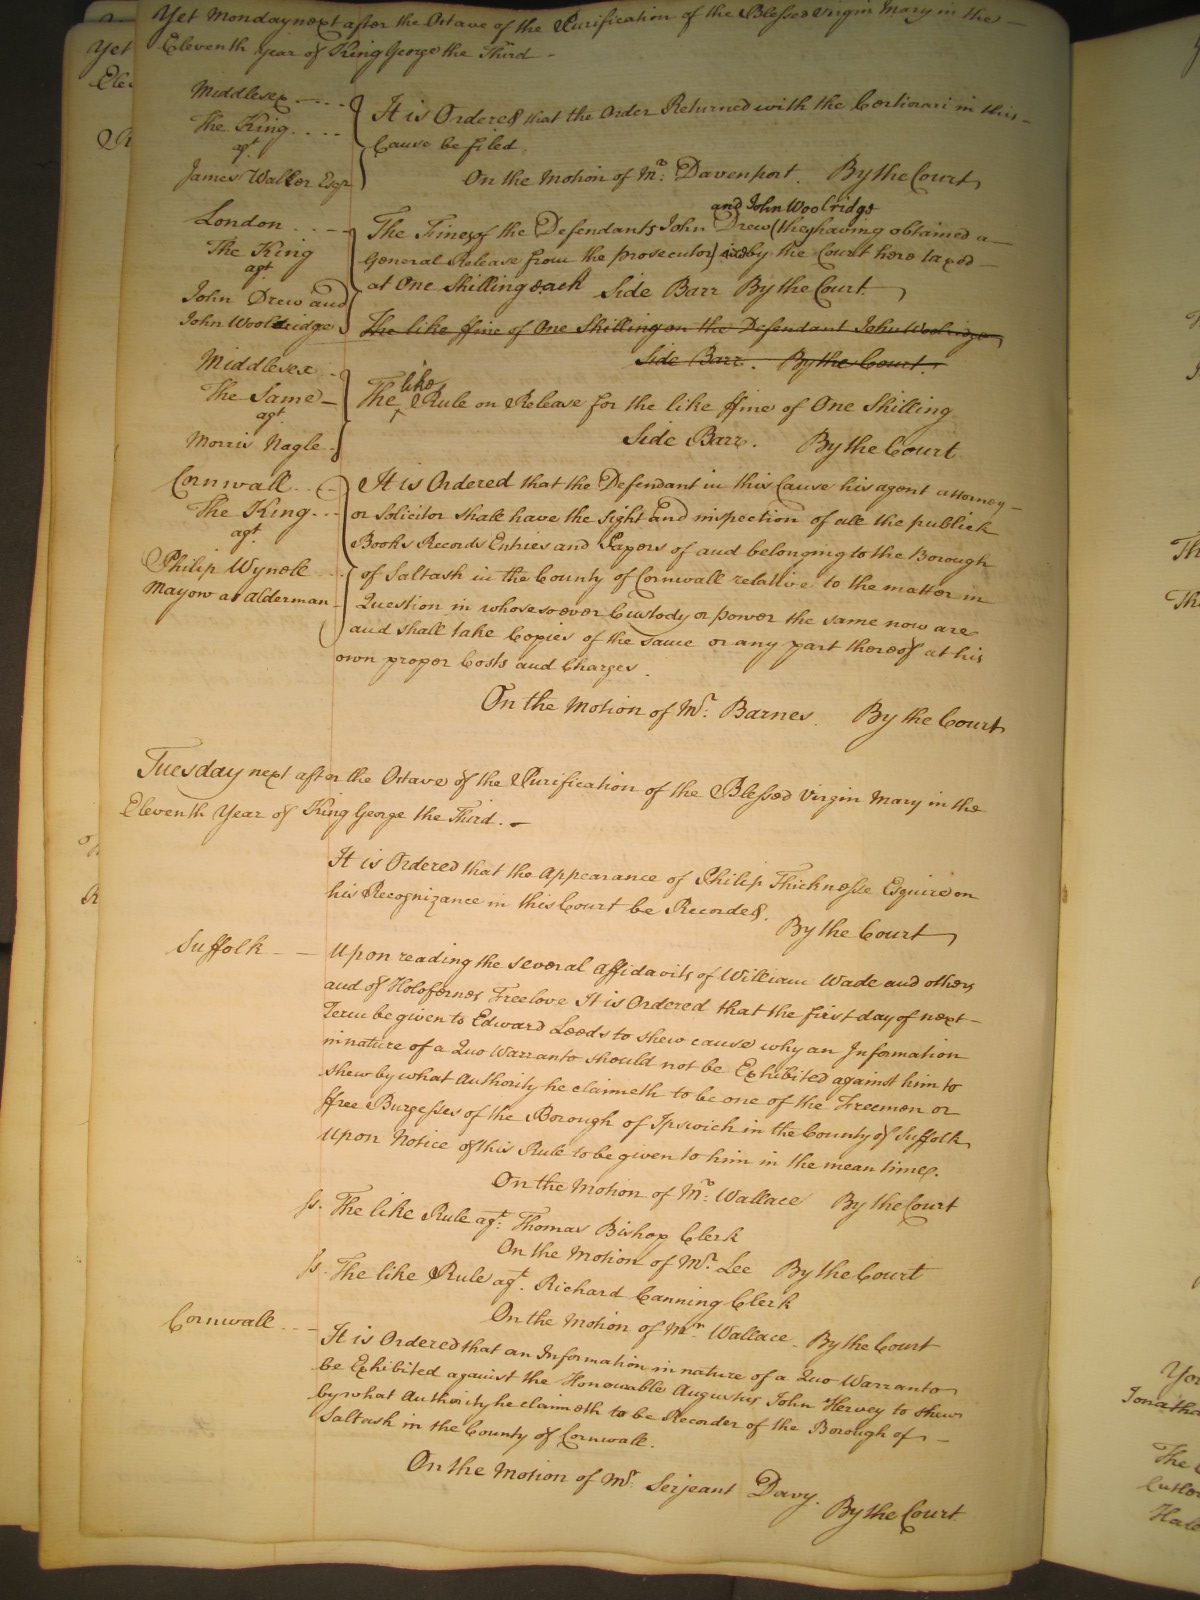 Yet Monday next after the Octave of the Purification of the Blessed Virgin Mary in the
Eleventh year of King George the Third
Middlesex
The King
agt
James Walker Esqr
It is Ordered that the Order Returned with the Certiorari in this
Cause be filed
On the Motion of Mr: Davenport. By the Court
London
The King
agt
John Drew and
John Wooldridge
and John Woolridge
The Fines of the Defendants John Drew (they having obtained a
General Release from the prosecutor) is by the Court here taxed
at One Shilling each Side Barr By the Court
The like ffine of One Shilling on the Defendant John Woolridge
Side Barr. By the Court.
Middlesex
The Same
agt
Morris Nagle
like
The Rule on Release for the like ffine of One Shilling
Side Barr. By the Court
Cornwall
The King
agt
Philip Wynell
Mayow as Alderman
It is Ordered that the Defendant in this Cause his agent attorney
or Solicitor shall have the Sight and inspection of all the publick
Books Records Entries and Papers of and belonging to the Borough
of Saltash in the County of Cornwall relative to the matter in
Question in whosesoever Custody or power the same now are
and shall take Copies of the same or any part thereof at his
own proper Costs and Charges.
On the Motion of Mr: Barnes. By the Court
Tuesday next after the Octave of the Purification of the Blessed Virgin Mary in the
Eleventh Year of King George the Third.
It is Ordered that the Appearance of Philip Thicknesse Esquire on
his Recognizance in this Court be Recorded.
By the Court
Suffolk
Upon reading the several Affidavits of William Wade and others
and of Holofernes Freelove It is Ordered that the first day of next
Term be given to Edward Leeds to shew cause why an Information
in nature of a Quo Warranto should not be Exhibited against him to
shew by what Authority he claimeth to be one of the Freemen or
ffree Burgesses of the Borough of Ipswich in the County of Suffolk
Upon Notice of this Rule to be given to him in the mean time.
On the Motion of Mr: Wallace By the Court
ss. The like Rule agt: Thomas Bishop Clerk
On the Motion of Mr: Lee By the Court
ss. The like Rule agt. Richard Canning Clerk
On the Motion of Mr Wallace. By the Court
Cornwall
It is Ordered that an Information in nature of a Quo Warranto
be Exhibited against the Honourable Augustus John Hervey to shew
by what Authority he claimeth to be Recorder of the Borough of
Saltash in the County of Cornwall.
On the Motion of Mr: Serjeant Davy.
By the Court